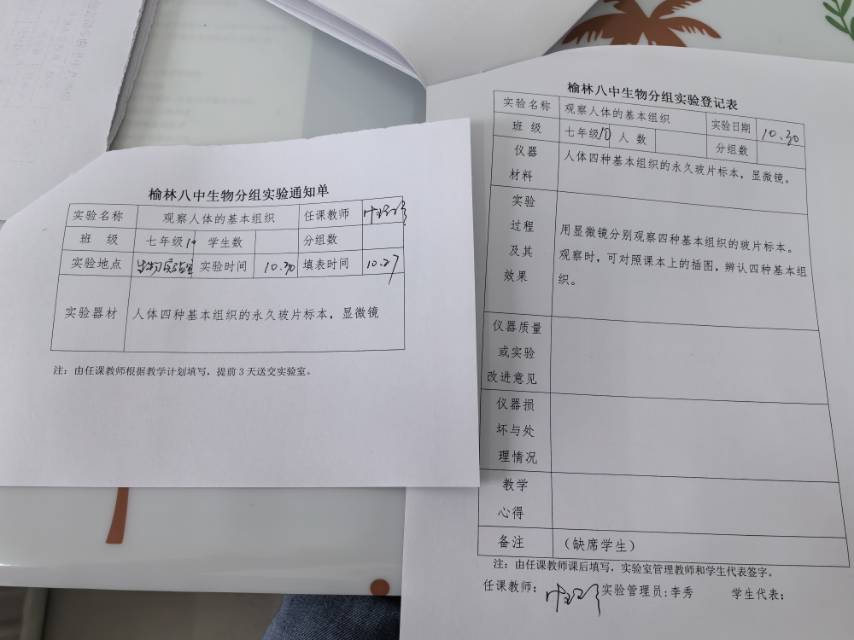 榆林八中生物分组实验通知单
实验名称 观察人体的基本组织 任课教师
班 级 七年级10 学生数 分组数
实验地点 生物实验室 实验时间 10.30 填表时间 10.27
实验器材 人体四种基本组织的永久玻片标本，显微镜
注：由任课教师根据教学计划填写，提前3天送交实验室。
榆林八中生物分组实验登记表
实验名称 观察人体的基本组织 实验日期 10.30
班 级 七年级10 人 数 分组数
仪器
材料
人体四种基本组织的永久玻片标本，显微镜。
实验
过程
及其
效果
用显微镜分别观察四种基本组织的玻片标本。
观察时，可对照课本上的插图，辨认四种基本组
织。
仪器质量
或实验
改进意见
仪器损
坏与处
理情况
教学
心得
备注 （缺席学生）
注：由任课教师课后填写，实验室管理教师和学生代表签字。
任课教师： 实验管理员：李秀 学生代表：